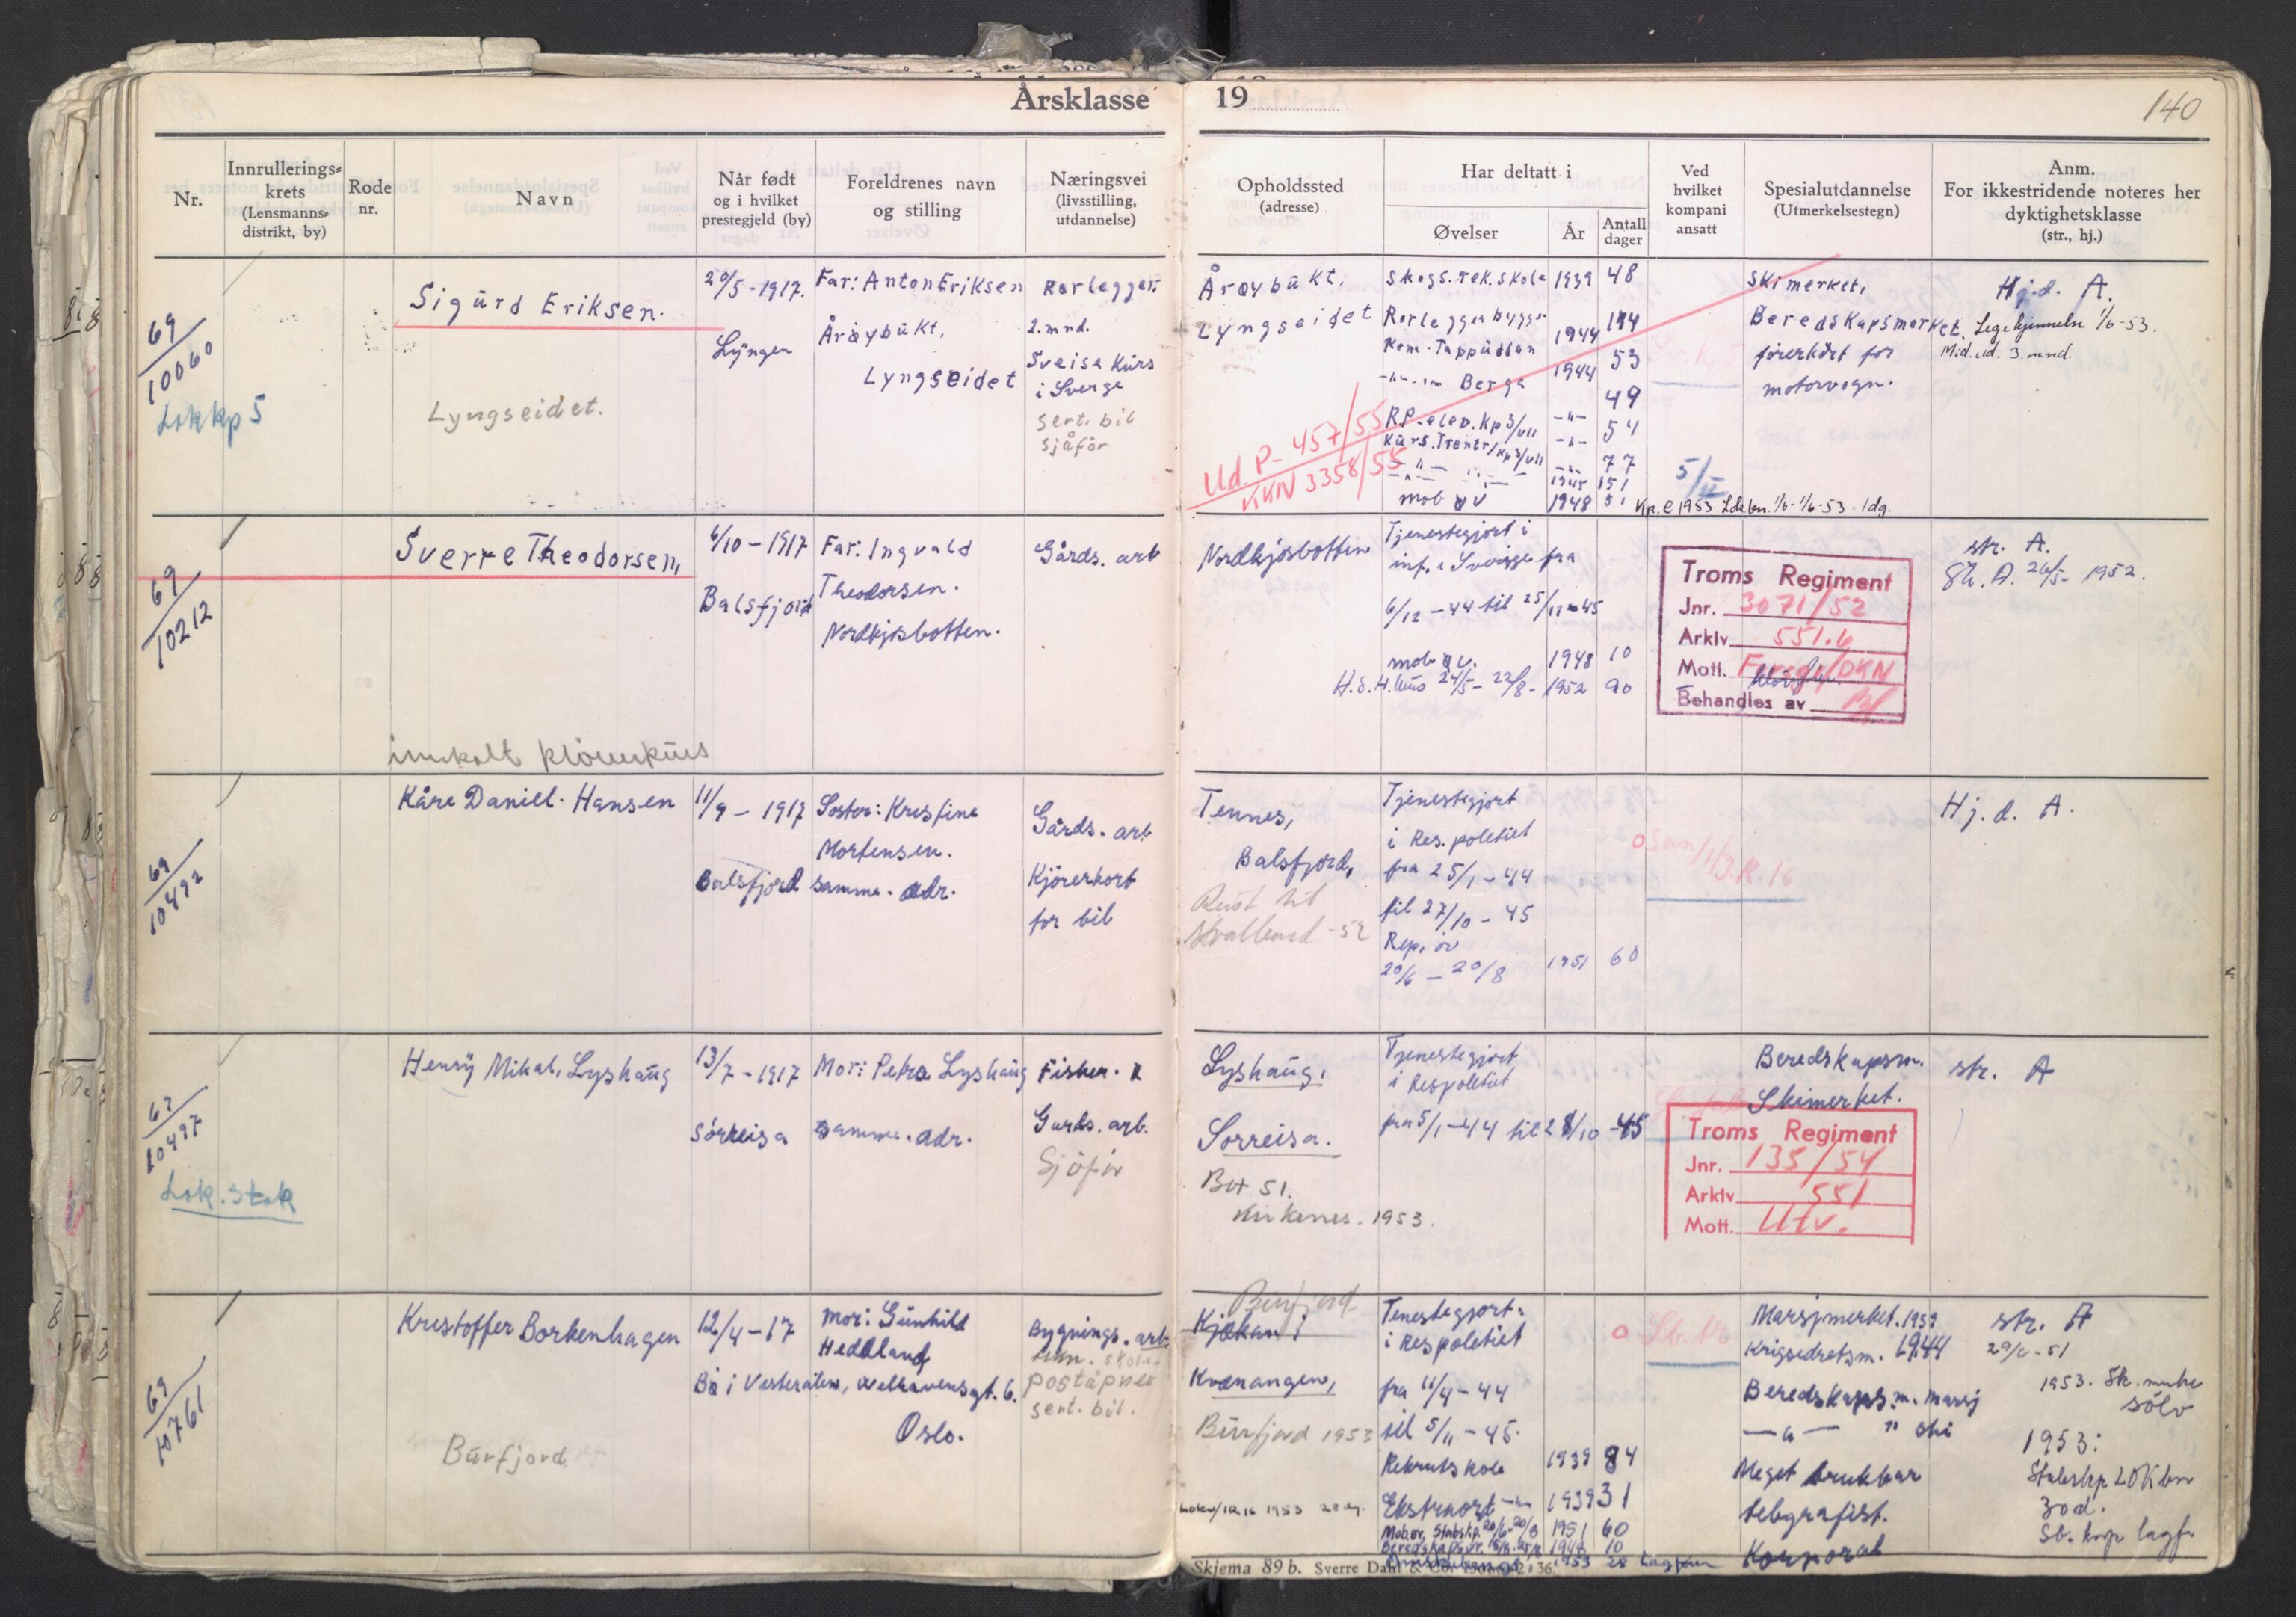 Årsklasse 19
140
Nr.
Innrullerings-
krets
(Lensmanns-
distrikt, by)
Rode
nr.
Navn
Når født
og i hvilket
prestegjeld (by)
Foreldrenes navn
og stilling
Næringsvei
(livsstilling,
utdannelse)
Opholdssted
(adresse)
Har deltatt i
Øvelser
År
Antall
dager
Ved
hvilket
kompani
ansatt
Spesialutdannelse
(Utmerkelsestegn)
Anm.
For ikkestridende noteres her
dyktighetsklasse
(str., hj.)
69/10060
Lok kp 5
Sigurd Eriksen.
Lyngseidet.
20/5-1917.
Lyngen
Far: Anton Eriksen
Årøybukt,
Lyngseidet
Rørlegger.
2. mnd.
Sveise kurs
i Sverge
sert. bil
sjåfør
Årøybukt,
Lyngseidet
Skogs. rek. skole 1939 48
1944
- " - Berga 1944 53
49
RP. elev. Kp 3/VII - " - 54
- " - 77
1945 151
mob øv 1948 5
Ud. P-457/55
KKN 3358/55
5/II
Kp. e 1953 Ldk bn. 1/6-1/6-53. 1 dg.
Skimerket,
Beredskapsmerket.
førerkort for
motorvogn.
Hj.d. A.
Legekjennelse 1/6-53.
Mid. ud. 3. mnd.
69/10212
Sverre Theodorsen,
innkalt
6/10-1917
Balsfjord
Far: Ingvald
Theodorsen.
Nordkjosbotten.
Gårds. arb
Nordkjosbotten
Tjenestegjort i
inf. i Sverige fra
6/12-44 til 25/11-45
mob øv. 1948 10
24/5-22/8- 1952 90
Troms Regiment
Jnr. 3071/52
Arkiv 551.6
Mott.
Behandles av
str. A.
26/5- 1952.
69/10492
Kåre Daniel. Hansen
11/9-1917
Balsfjord
Søster: Kristine
Mortensen.
samme. adr.
Gårds. arb
Kjørerkort
for bil
Tennes,
Balsfjord,
Reist til
Svalbard -52
Tjenestegjort
i Res. politiet
fra 25/1-44
til 27/10-45
Rep. øv
20/6-20/8 1951 60
Hj.d. A.
10497
Lok. Stok
Henry Mikal, Lyshaug
13/7-1917
Sørreisa
Mor: Petra Lyshaug
samme. adr.
Fisker.
Gards. arb.
Sjåfør
Lyshaug,
Sørreisa.
Box 51.
Kirkenes. 1953.
Tjenestegjort
i Respolitiet
fra 5/1-44 til 28/10-45
Beredskapsm.
Skimerket.
Troms Regiment
Jnr. 135/54
Arkiv 551
Mott. Utv.
str. A
69/10761
Kristoffer Borkenhagen
Burfjord
12/4-17
Bø i Vesterålen,
Mor: Gunhild
Hedland
Welhavensgt. 6.
Oslo.
Bygnings. arb.
poståpner
sert. bil.
Burfjord
Kjækan i
Kvænangen,
Burfjord 1953
Tenestegjort
i Respolitiet
fra 11/4-44
til 5/11-45.
Rekrutskole 1939 84
1939 31
Mob. øv. Stabskp. 20/6-20/8 1951 60
10
1953 28
Marsjmerket. 1939
Krigsidretsm. 1944
Beredskaps. m. marsj
- " - " ski
Meget brukbar
telegrafist.
Korporal
str. A
1953. Sk. merke
sølv
1953:
Stabskp LDK bn
30 d.
Skjema 89 b. Sverre Dahl & Co.